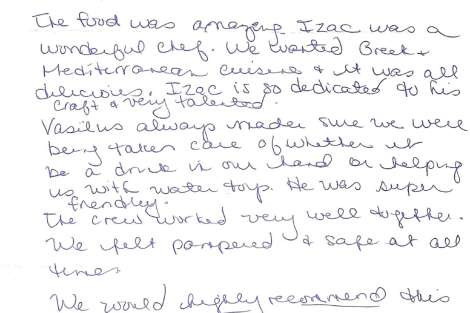 The food was amazing Izac was a
wonderful chef. We wanted Greek +
Mediterranean cuisine + it was all
delicious. Izac is so dedicated to his
craft + very talented.
Vasilus always mader sure we were
being taken care of whether it
be a drink in our hand or helping
us with water toys. He was super
friendly.
The crew worked very well together.
We felt pampered + safe at all
times
We would highly recommend this